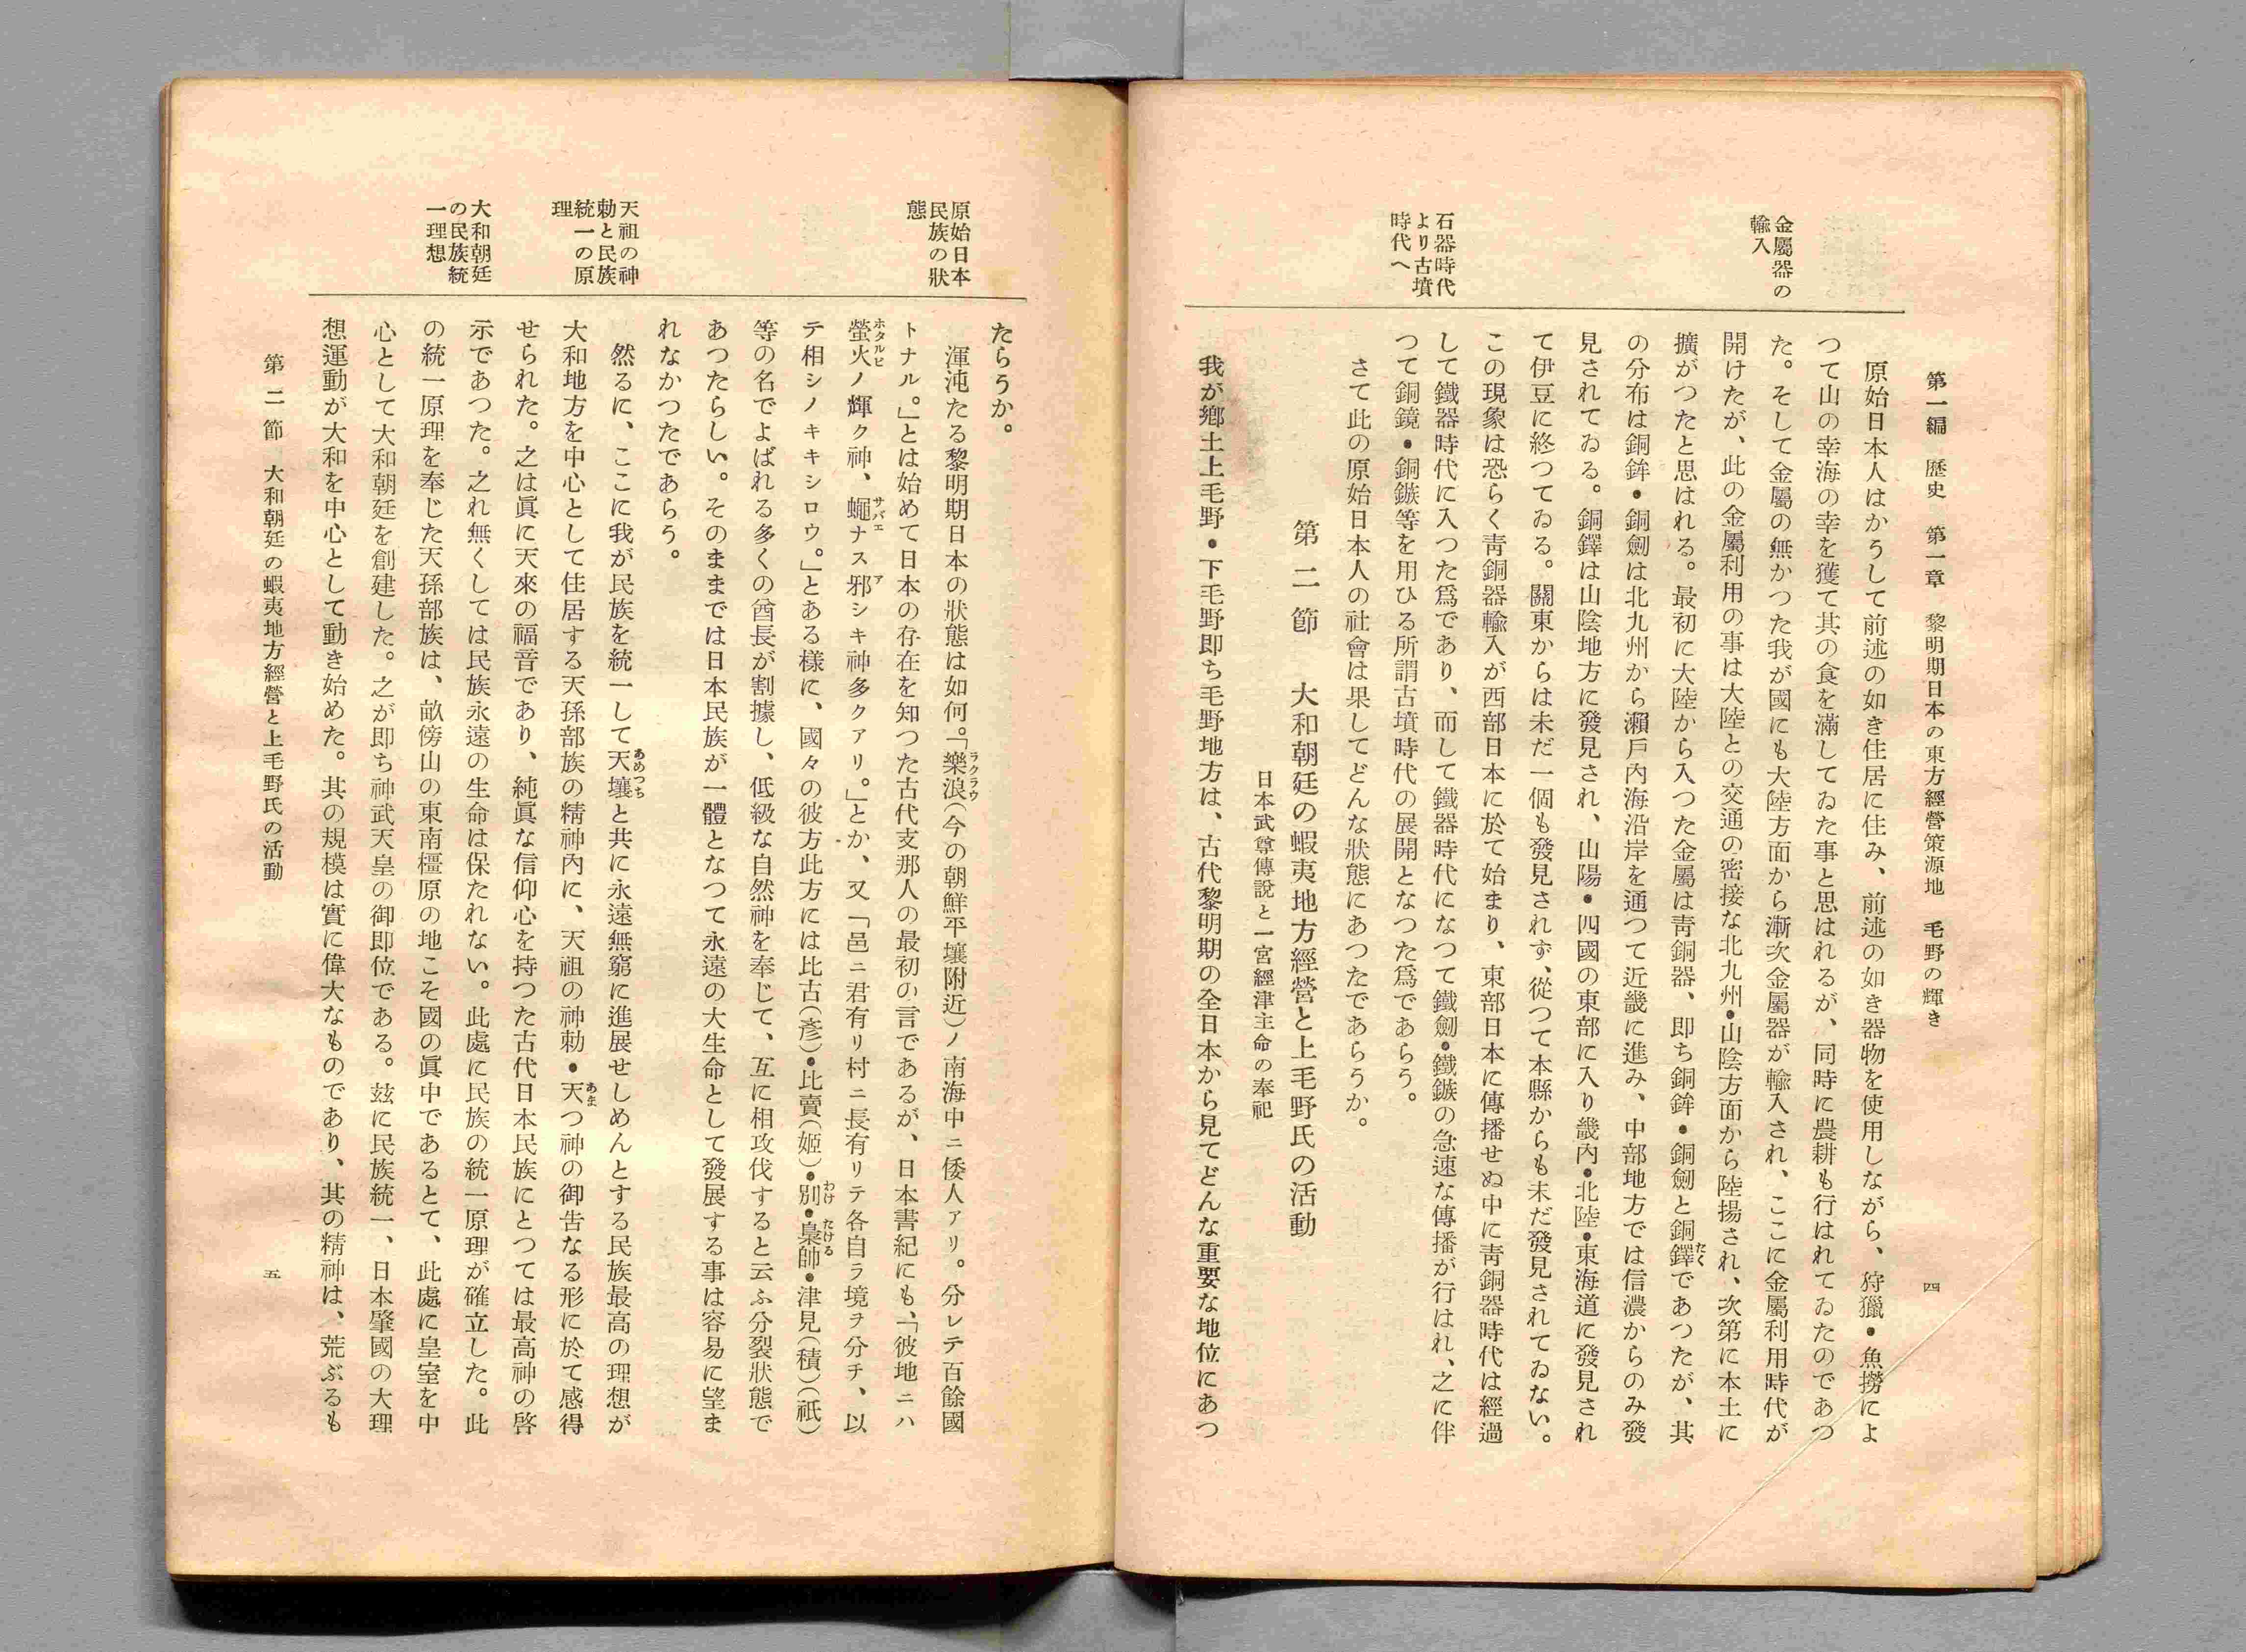 第一編　歴史　第一章　黎明期日本の東方經營策源地　毛野の輝き
四
金屬器の
輸入
石器時代
より古墳
時代へ
原始日本人はかうして前述の如き住居に住み、前述の如き器物を使用しながら、狩獵・魚撈によ
つて山の幸海の幸を獲て其の食を滿してゐた事と思はれるが、同時に農耕も行はれてゐたのであつ
た。そして金屬の無かつた我が國にも大陸方面から漸次金屬器が輸入され、ここに金屬利用時代が
開けたが、此の金屬利用の事は大陸との交通の密接な北九州・山陰方面から陸揚され、次第に本土に
擴がつたと思はれる。最初に大陸から入つた金屬は青銅器、即ち銅鉾・銅劍と銅鐸たくであつたが、其
の分布は銅鉾・銅劍は北九州から瀨戸内海沿岸を通つて近畿に進み、中部地方では信濃からのみ發
見されてゐる。銅鐸は山陰地方に發見され、山陽・四國の東部に入り畿内・北陸・東海道に發見され
て伊豆に終つてゐる。關東からは未だ一個も發見されず、從つて本縣からも未だ發見されてゐない。
この現象は恐らく青銅器輸入が西部日本に於て始まり、東部日本に傳播せぬ中に青銅器時代は經過
して鐵器時代に入つた爲であり、而して鐵器時代になつて鐵劍・鐵鏃の急速な傳播が行はれ、之に伴
つて銅鏡・銅鏃等を用ひる所謂古墳時代の展開となつた爲であらう。
さて此の原始日本人の社會は果してどんな狀態にあつたであらうか。
第二節　大和朝廷の蝦夷地方經營と上毛野氏の活動
日本武尊傳說と一宮經津主命の奉祀
我が鄕土上毛野・下毛野即ち毛野地方は、古代黎明期の全日本から見てどんな重要な地位にあつ
原始日本
民族の狀
態
天祖の神
勅と民族
統一の原
理
大和朝廷
の民族統
一理想
たらうか。
渾沌たる黎明期日本の狀態は如何。「樂浪ラクラウ(今の朝鮮平壤附近)ノ南海中ニ倭人アリ。分レテ百餘國
トナル。」とは始めて日本の存在を知つた古代支那人の最初の言であるが、日本書紀にも、「彼地ニハ
螢火ホタルビノ輝ク神、蠅サバエナス邪アシキ神多クアリ。」とか、又「邑ニ君有リ村ニ長有リテ各自ラ境ヲ分チ、以
テ相シノキキシロウ。」とある樣に、國々の彼方此方には比古(彥)・比賣(姬)・別わけ・梟帥たける・津見(積)(祇)
等の名でよばれる多くの酋長が割據し、低級な自然神を奉じて、互に相攻伐すると云ふ分裂狀態で
あつたらしい。そのままでは日本民族が一體となつて永遠の大生命として發展する事は容易に望ま
れなかつたであらう。
然るに、ここに我が民族を統一して天壤あめつちと共に永遠無窮に進展せしめんとする民族最高の理想が
大和地方を中心として住居する天孫部族の精神內に、天祖の神勅・天あまつ神の御告なる形に於て感得
せられた。之は眞に天來の福音であり、純眞な信仰心を持つた古代日本民族にとつては最高神の啓
示であつた。之れ無くしては民族永遠の生命は保たれない。此處に民族の統一原理が確立した。此
の統一原理を奉じた天孫部族は、畝傍山の東南橿原の地こそ國の眞中であるとて、此處に皇室を中
心として大和朝廷を創建した。之が即ち神武天皇の御即位である。玆に民族統一、日本肇國の大理
想運動が大和を中心として動き始めた。其の規模は實に偉大なものであり、其の精神は、荒ぶるも
第二節　大和朝廷の蝦夷地方經營と上毛野氏の活動
五